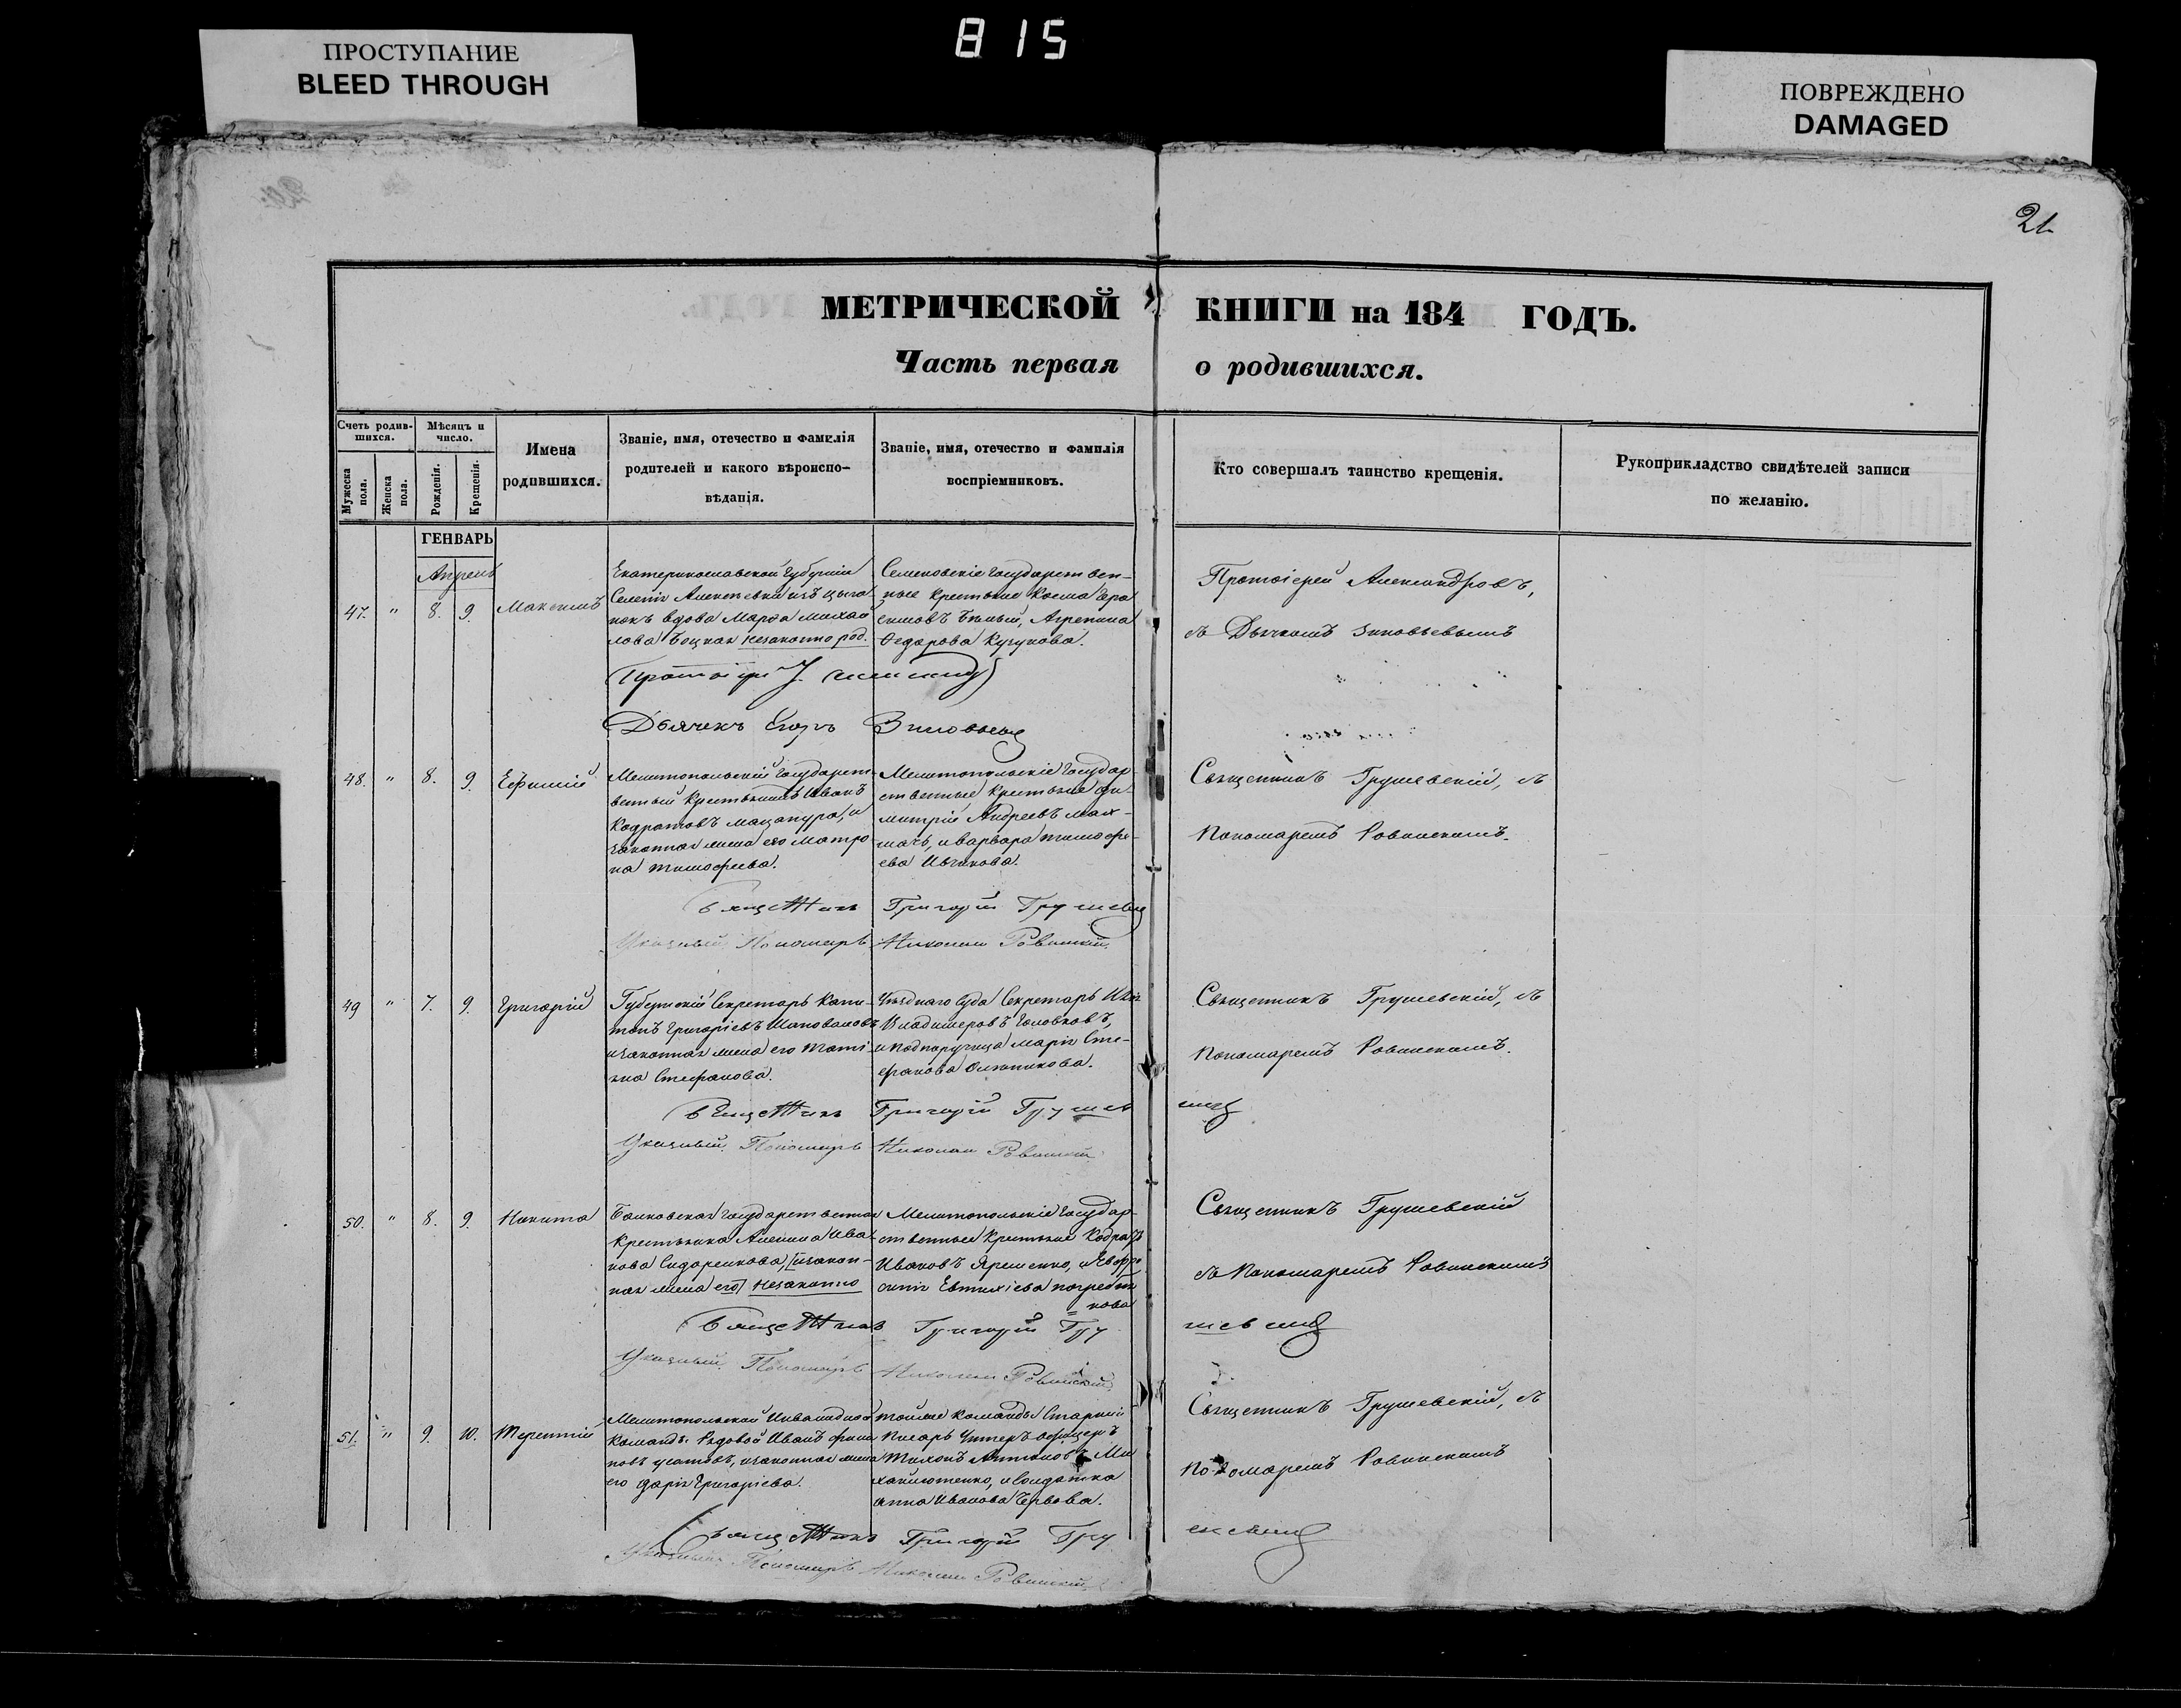 815
ПРОСТУПАНИЕ
BLEED THROUGH
ПОВРЕЖДЕНО
DAMAGED
21.
МЕТРИЧЕСКОЙ КНИГИ на 184 ГОДЪ.
Часть первая о родившихся.
Счетъ родив-
шихся.
Мужеска пола.
Женска пола.
Мѣсяцъ и число.
Рожденія.
Крещенія.
Имена
родившихся.
Званіе, имя, отечество и фамилія
родителей и какого вѣроиспо-
вѣданія.
Званіе, имя, отечество и фамилія
воспріемниковъ.
Кто совершалъ таинство крещенія.
Рукоприкладство свидѣтелей записи
по желанію.
ГЕНВАРЬ
Апрель
47. " 8. 9. Максимъ
Екатеринославской Губерніи
Селенія Алексѣевки изъ цыга-
нокъ вдова Марѳа Михай
лова незаконно род.
Семеновскіе Государствен-
ные крестьяне Косма Гера
симовъ Бѣлый, Агрепина
Ѳедорова Кучукова.
Протоіерей Александровъ,
съ Дьячкомъ Зиновьевымъ
Протоіерей
Дьячекъ Егоръ Зиновьевъ
48. " 8. 9. Ефимій
Мелитопольскій Государст-
венный крестьянинъ Иванъ
Кодратовъ Мацапура, и
законная жена его Матро-
на Тимофеева.
Мелитопольскіе Государ-
ственные крестьяне Ди-
митрій Андреевъ
и Варвара Тимофе-
ева
Священникъ Грушевскій, съ
Пономаремъ Ровинскимъ.
Священникъ Григорій Грушевскій
Указный Пономарь Николай Ровинскій
49 " 7. 9. Григорій
Губернскій Секретарь Капи-
тонъ Григоріевъ Шаповаловъ
и законная жена его Тати-
яна Стефанова.
Уѣзднаго Суда Секретарь
Владимеровъ Головковъ,
и Подпоручица Марія Сте-
фанова
Священникъ Грушевскій, съ
Пономаремъ Ровинскимъ.
Священникъ Григорій Грушевскій
Указный Пономарь Николай Ровинскій
50. " 8. 9. Никита
Балковская Государственная
крестьянка Ива-
нова Сидоренкова, [изакон-
ная жена его] незаконно
Мелитопольскіе Государ-
ственные крестьяне Кодратъ
Ивановъ Яременко, и Евфро
синія Евтихіева
Священникъ Грушевскій
съ Пономаремъ Ровинскимъ
Священникъ Григорій Грушевскій
Указный Пономарь Николай Ровинскій
51. " 9. 10. Терентій
Мелитопольской Инвалидной
Команды Рядовой Иванъ Фили
повъ Усатовъ, и законная жена
его Дарія Григоріева.
тойже Команды Старшій
Писарь Унтеръ офицеръ
Тихонъ Антоновъ Ми
хайлютенко, и Солдатка
Анна Иванова
Священникъ Грушевскій, съ
Пономаремъ Ровинскимъ
Священникъ Григорій Грушевскій
Указный Пономарь Николай Ровинскій